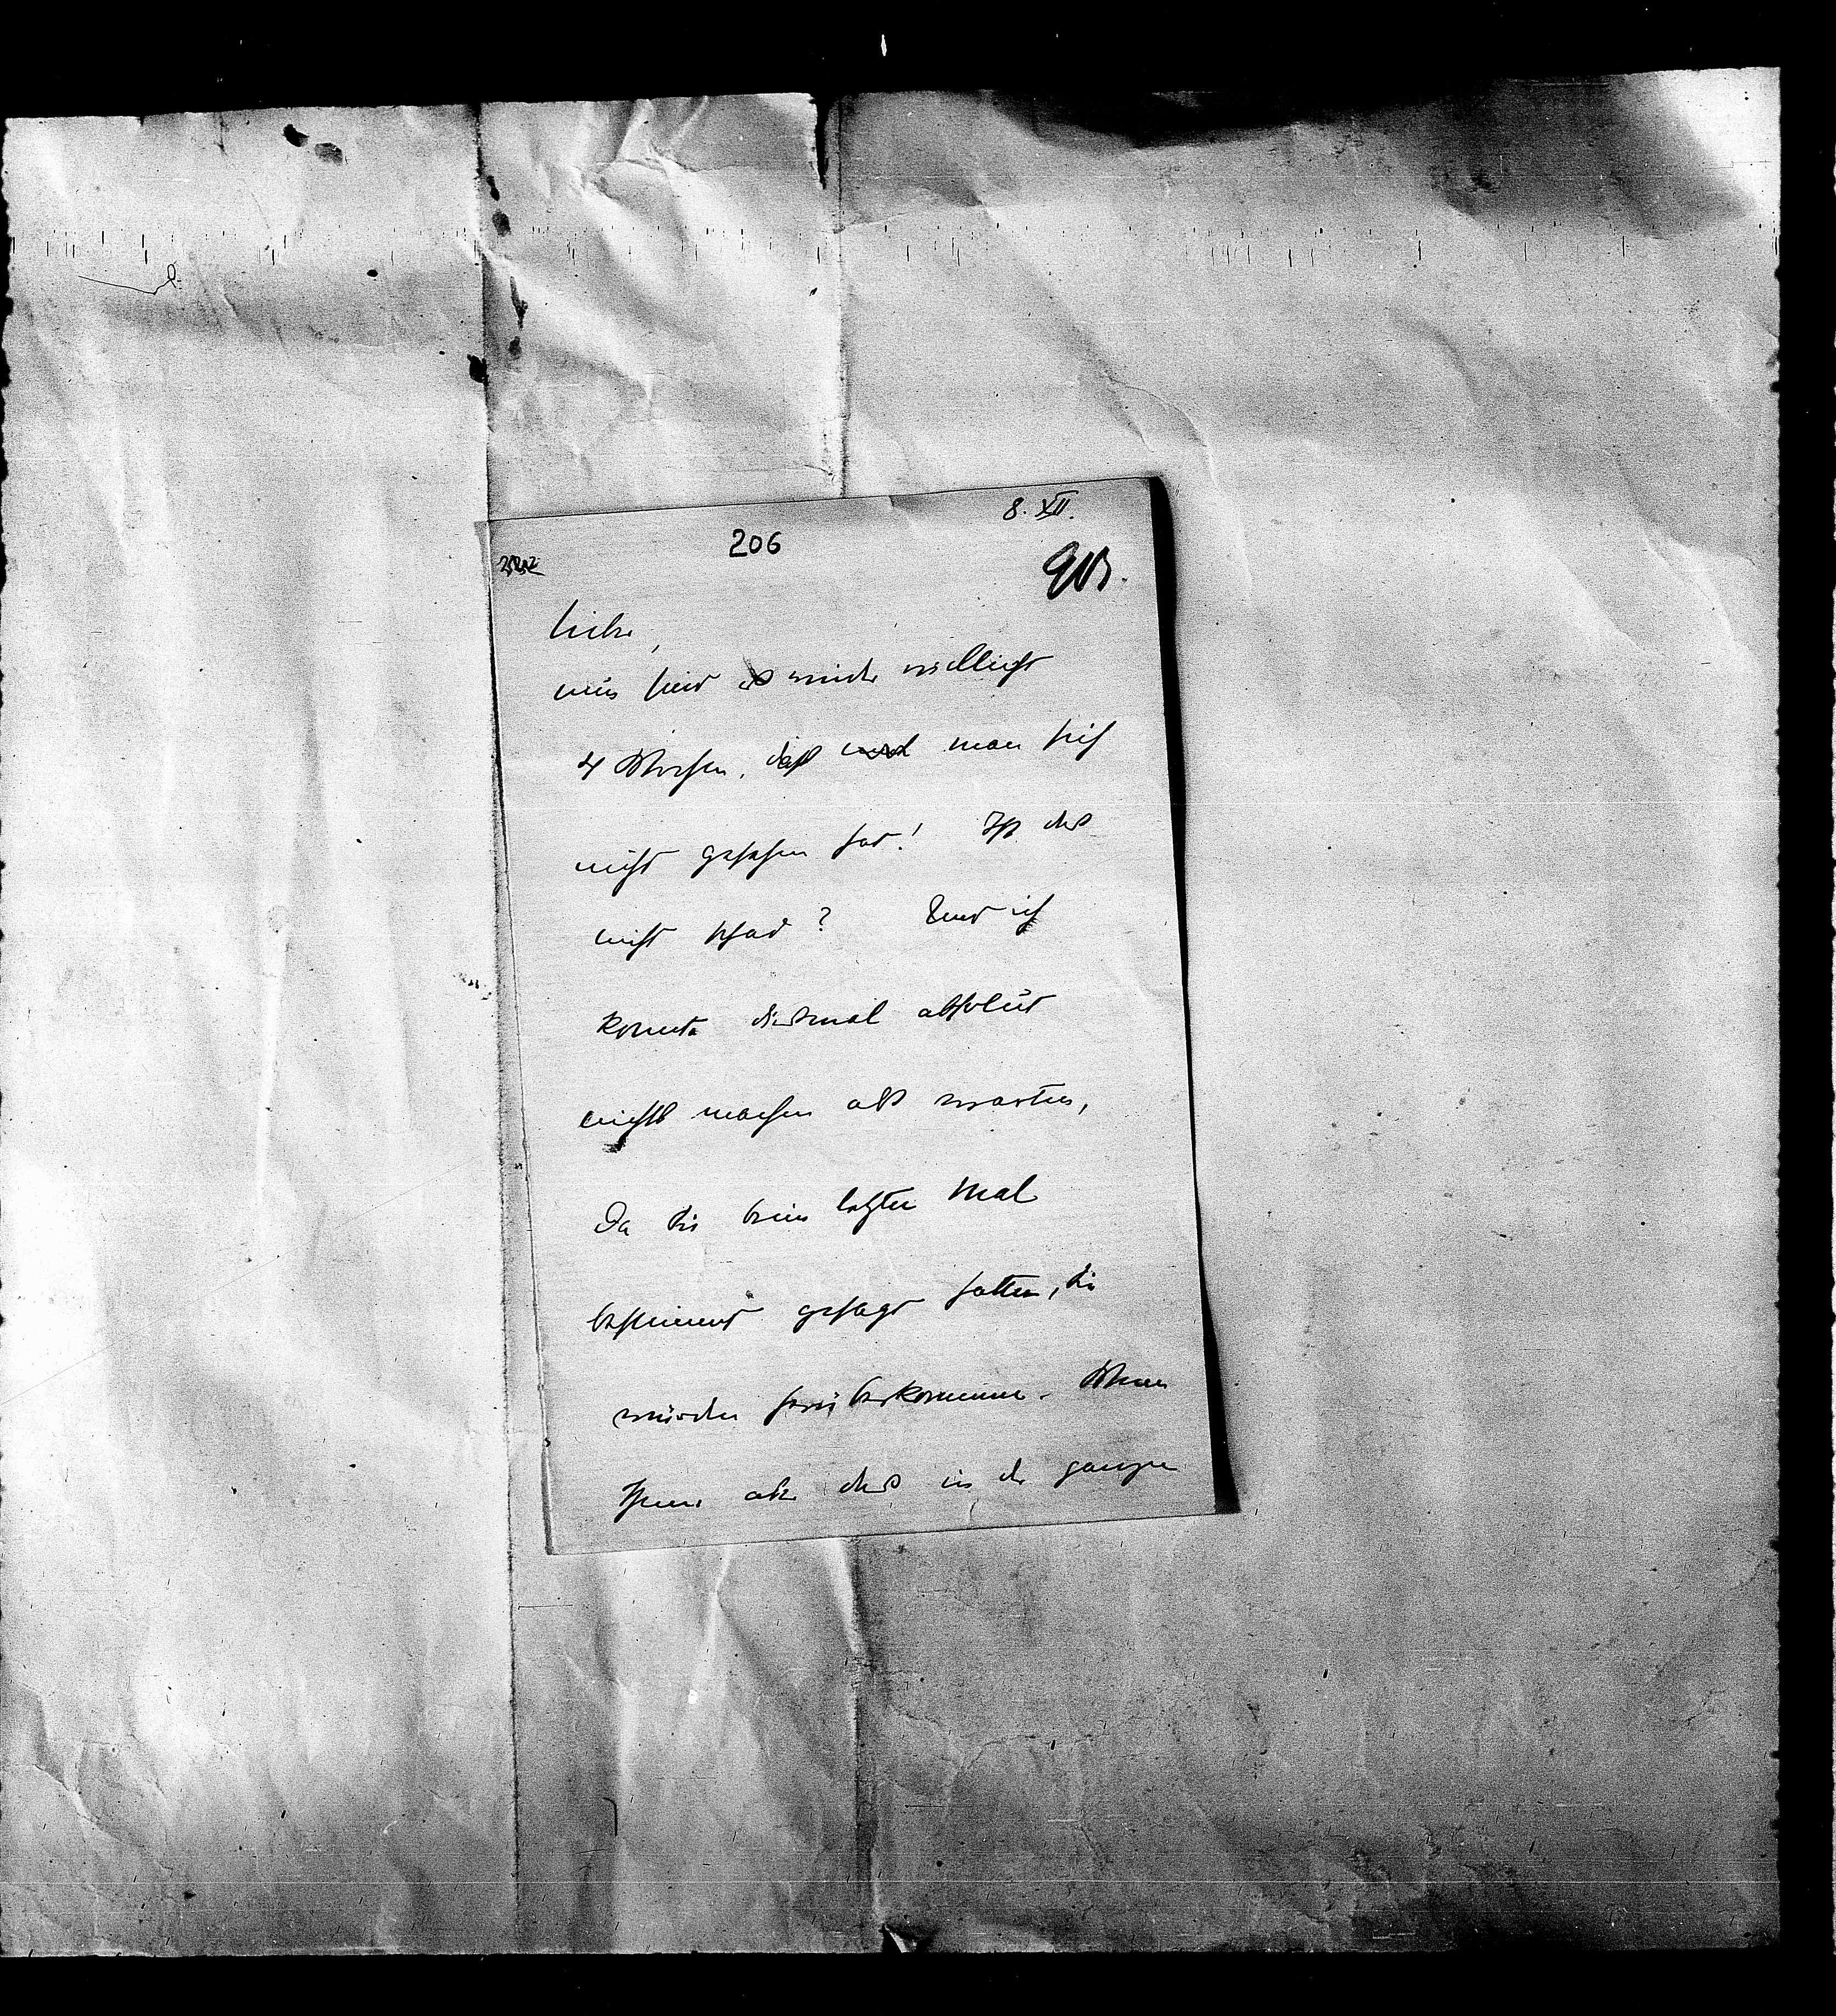 8. XII.
206
Liebe,
nun sind es wieder vielleicht
4 Wochen, daß man sich
nicht gesehen hat! Ist das
nicht schad? Und ich
konnte diesmal absolut
nichts machen als warten,
Da Sie beim letzten Mal
bestimmt gesagt hatten, Sie
würden herüberkommen. Wenn
Ihnen aber das in der ganzen